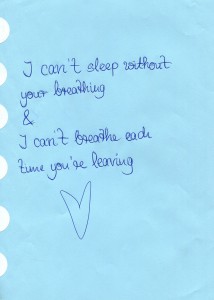 I can't sleep without
your breathing
&
I can't breathe each
time you're leaving